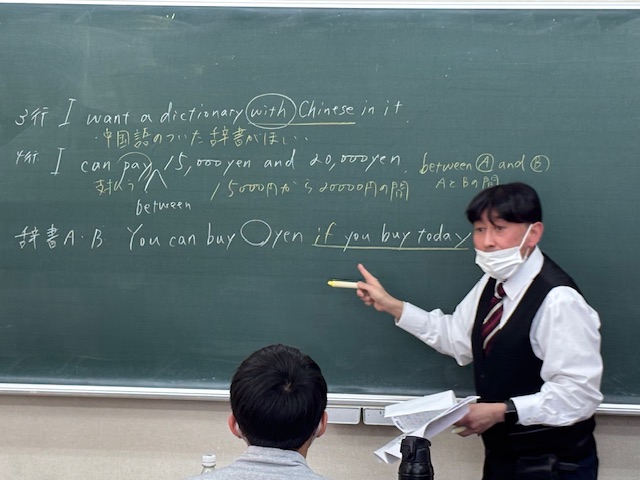 3行 I want a dictionary with Chinese in it.
・中国語のついた辞書がほしい.
4行 I can pay 15,000yen and 20,000yen. between Ⓐ and Ⓑ
支払う 15000円から20000円の間 AとBの間
between
辞書A・B You can buy ◯yen if you buy today